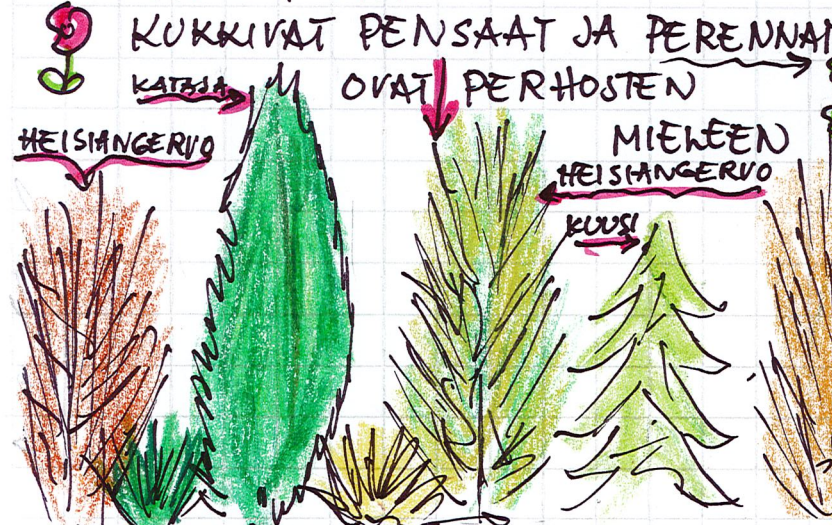 KUKKIVAT PENSAAT JA PERENNAT
OVAT PERHOSTEN
MIELEEN
KATAJA
HEISIANGERVO
HEISIANGERVO
KUUSI